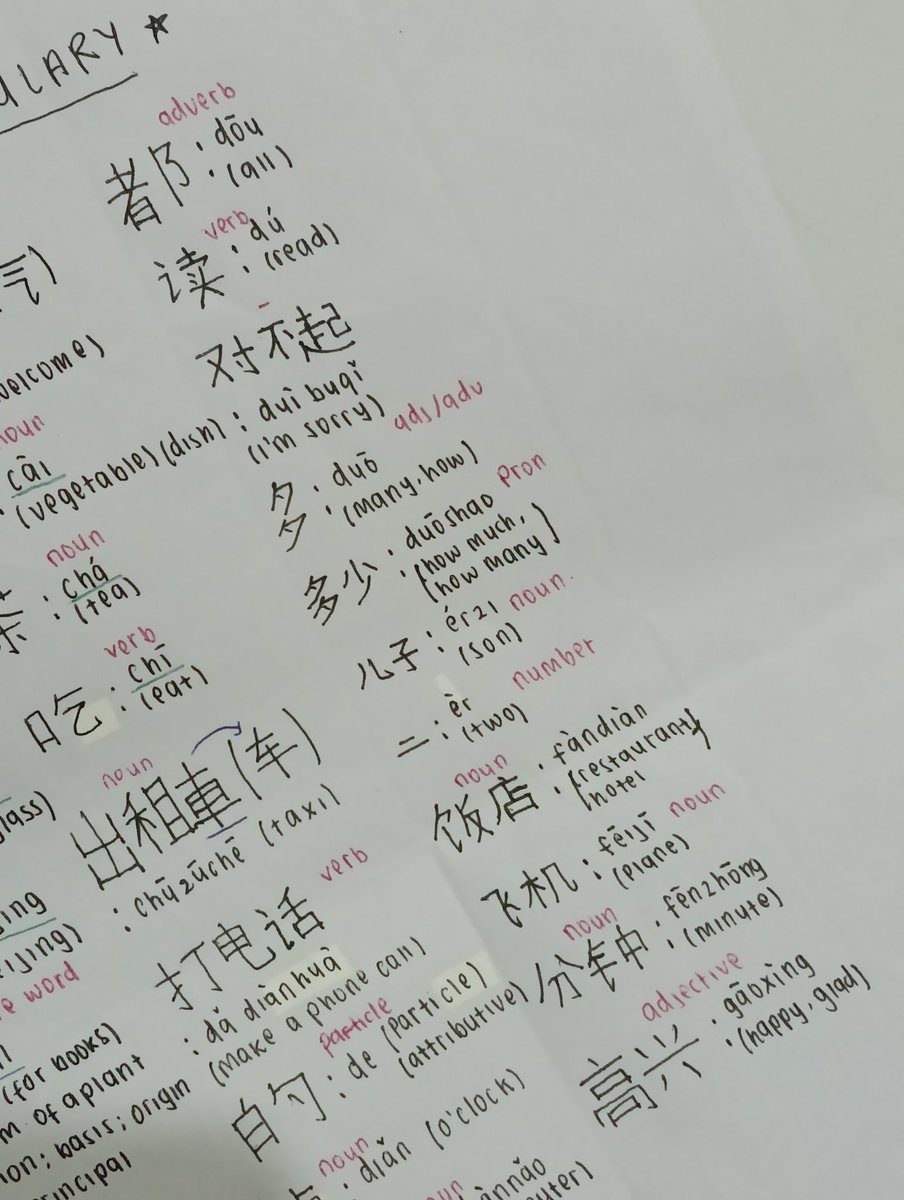 ULARY ☆
adverb
都 : dōu
(all)
verb
读 : dú
(read)
对不起
: duì buqǐ
(i'm sorry)
adj/adv
多 : duō
(many, how)
多少 : duōshao pron
(how much,
how many)
儿子 : érzi noun
(son)
二 : èr number
(two)
noun
饭店 : fàndiàn
(restaurant)
hotel
飞机 : fēijī noun
(plane)
noun
分钟 : fēnzhōng
(minute)
adjective
高兴 : gāoxìng
(happy, glad)
气)
welcome)
noun
cài
: (vegetable) (dish)
noun
茶 : chá
(tea)
verb
吃 : chī
(eat)
noun
出租車 (车)
: chūzūchē (taxi)
verb
打电话
: dǎ diàn huà
(make a phone call)
particle
的 : de (particle)
(attributive)
noun
: diǎn (o'clock)
noun
glass)
jing
eijing)
e word
(for books)
m of a plant
ion; basis; origin
rincipal
ànnǎo
uter)